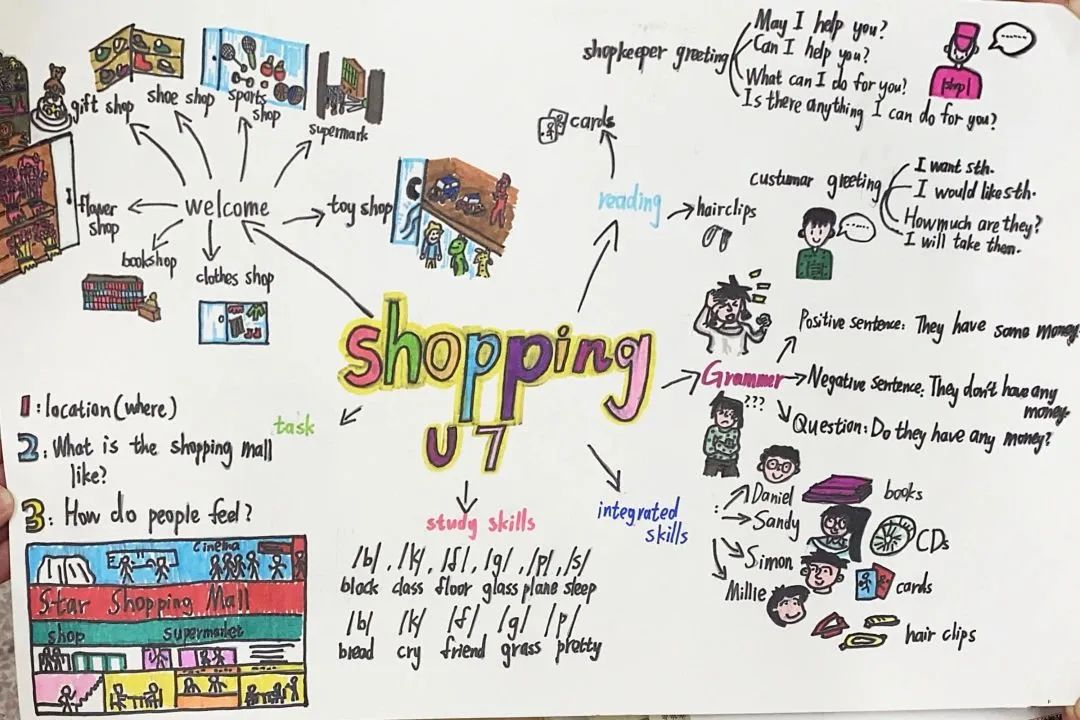 gift shop
shoe shop
sports
shop
supermark
flower
shop
welcome
toy shop
bookshop
clothes shop
shopkeeper greeting
May I help you?
Can I help you?
What can I do for you?
Is there anything I can do for you?
shop
cards
reading
hairclips
custumar greeting
I want sth.
I would like sth.
How much are they?
I will take then.
shopping
U 7
Grammer
Positive sentence: They have some money.
Negative sentence: They don't have any
money.
Question: Do they have any money?
???
task
1: location (where)
2: What is the shopping mall
like?
3: How do people feel?
cinema
Star Shopping Mall
shop supermarket
study skills
/b/, /k/, /f/, /g/, /p/, /s/
black class floor glass plane sleep
/b/ /k/ /f/ /g/ /p/
bread cry friend grass pretty
integrated
skills
:
Daniel books
Sandy CDs
Simon cards
Millie hair clips